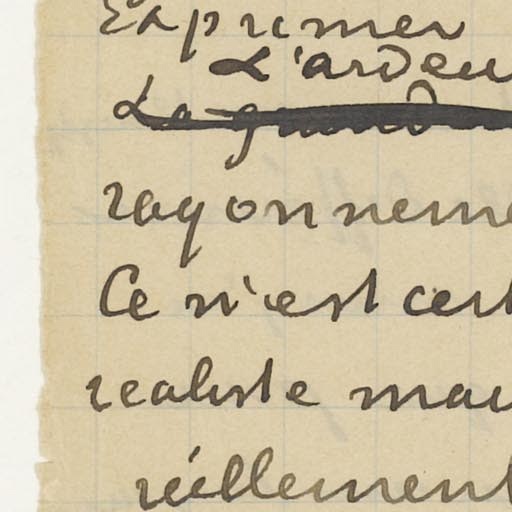 Exprimer
L'ardeu
La grand
rayonneme
Ce n'est cert
realiste mai
réellement